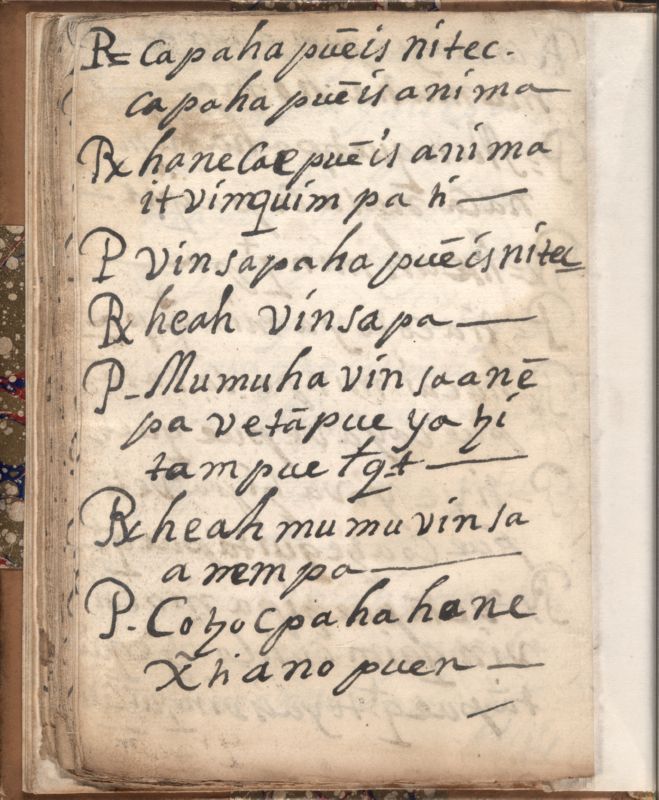 P= capaha puēis nitec.
capaha pueis anima
Rx hane Cae puēis anima
it vinquim pa ti —
P vinsapaha puēis nitec
Rx heah vinsapa —
P- Mumuha vin sa anē
pa vetāpue yo tzi
tam pue
Rx heah mumu vin sa
anempa —
P- Cotzocpaha hane
Xp̃tiano puen —